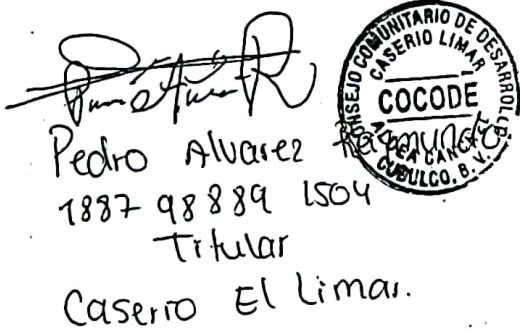 CONSEJO COMUNITARIO DE DESARROLLO
CASERIO LIMAR
COCODE
ALDEA CANCHEL
CUBULCO, B. V.
Pedro Alvarez Raymundo
1887 98889 1504
Titular
Caserio El Limar.